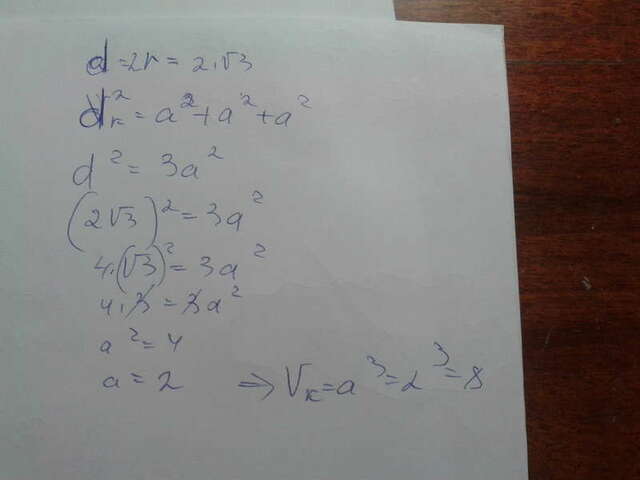 d=2r=2·√3
d²ₖ=a²+a²+a²
d²=3a²
(2√3)²=3a²
4·(√3)²=3a²
4·3=3a²
a²=4
a=2 ⇒ Vₖ=a³=2³=8